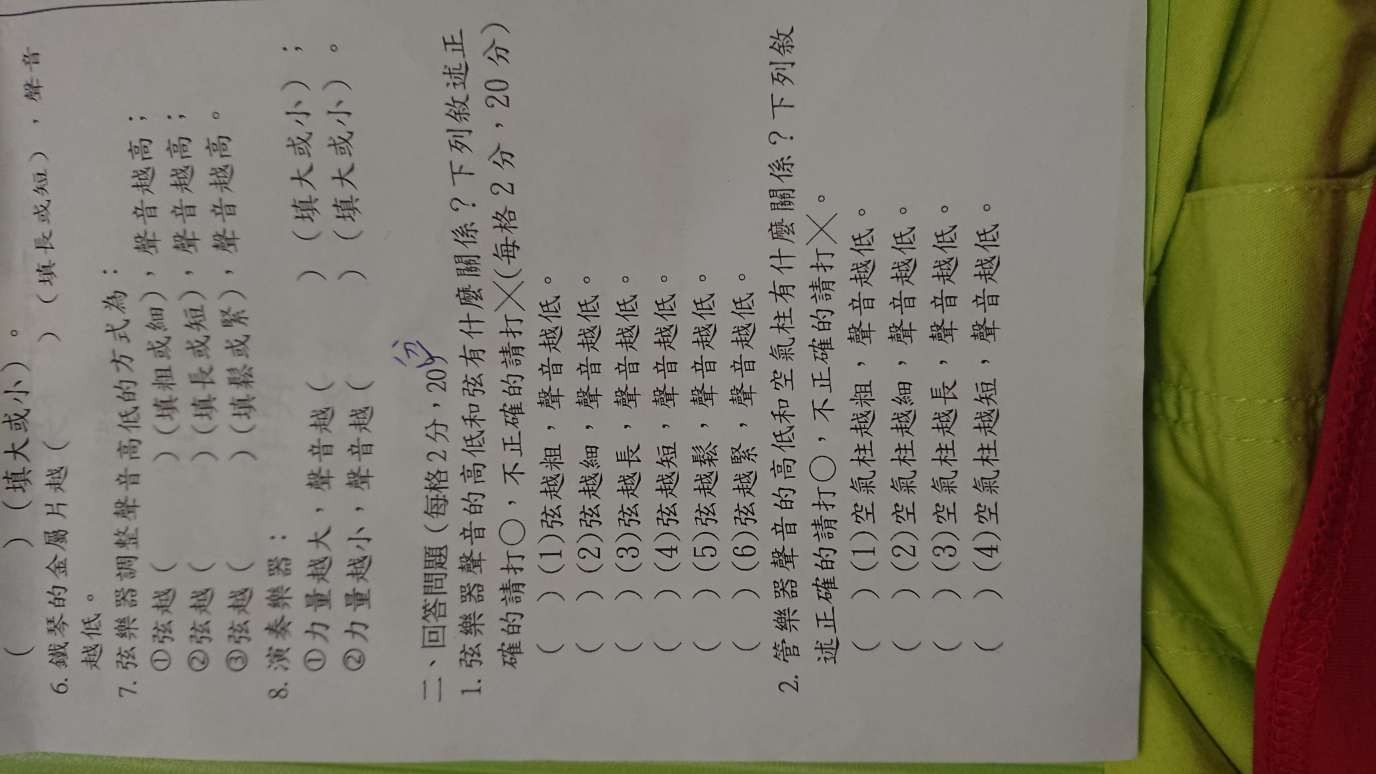 (　　　)(填大或小)。
6. 鐵琴的金屬片越(　　　)(填長或短),聲音
越低。
7. 弦樂器調整聲音高低的方式為:
①弦越(　　　)(填粗或細),聲音越高;
②弦越(　　　)(填長或短),聲音越高;
③弦越(　　　)(填鬆或緊),聲音越高。
8. 演奏樂器:
①力量越大,聲音越(　　　)(填大或小);
②力量越小,聲音越(　　　)(填大或小)。
二、回答問題(每格2分,20分)
1. 弦樂器聲音的高低和弦有什麼關係?下列敘述正
確的請打○,不正確的請打╳(每格2分,20分)
(　　)(1)弦越粗,聲音越低。
(　　)(2)弦越細,聲音越低。
(　　)(3)弦越長,聲音越低。
(　　)(4)弦越短,聲音越低。
(　　)(5)弦越鬆,聲音越低。
(　　)(6)弦越緊,聲音越低。
2. 管樂器聲音的高低和空氣柱有什麼關係?下列敘
述正確的請打○,不正確的請打╳。
(　　)(1)空氣柱越粗,聲音越低。
(　　)(2)空氣柱越細,聲音越低。
(　　)(3)空氣柱越長,聲音越低。
(　　)(4)空氣柱越短,聲音越低。